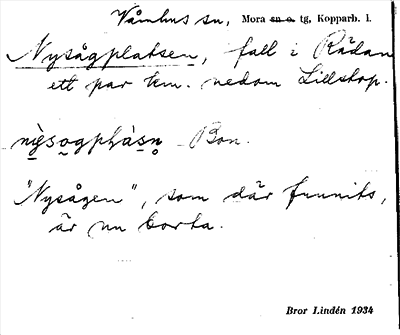 Våmhus sn, Mora sn o. tg, Kopparb. l.
Nysågplatsen, fall i Rådan
ett par km. nedom Lillstop.
Bon.
"Nysågen", som där funnits,
är nu borta.
Bror Lindén 1934